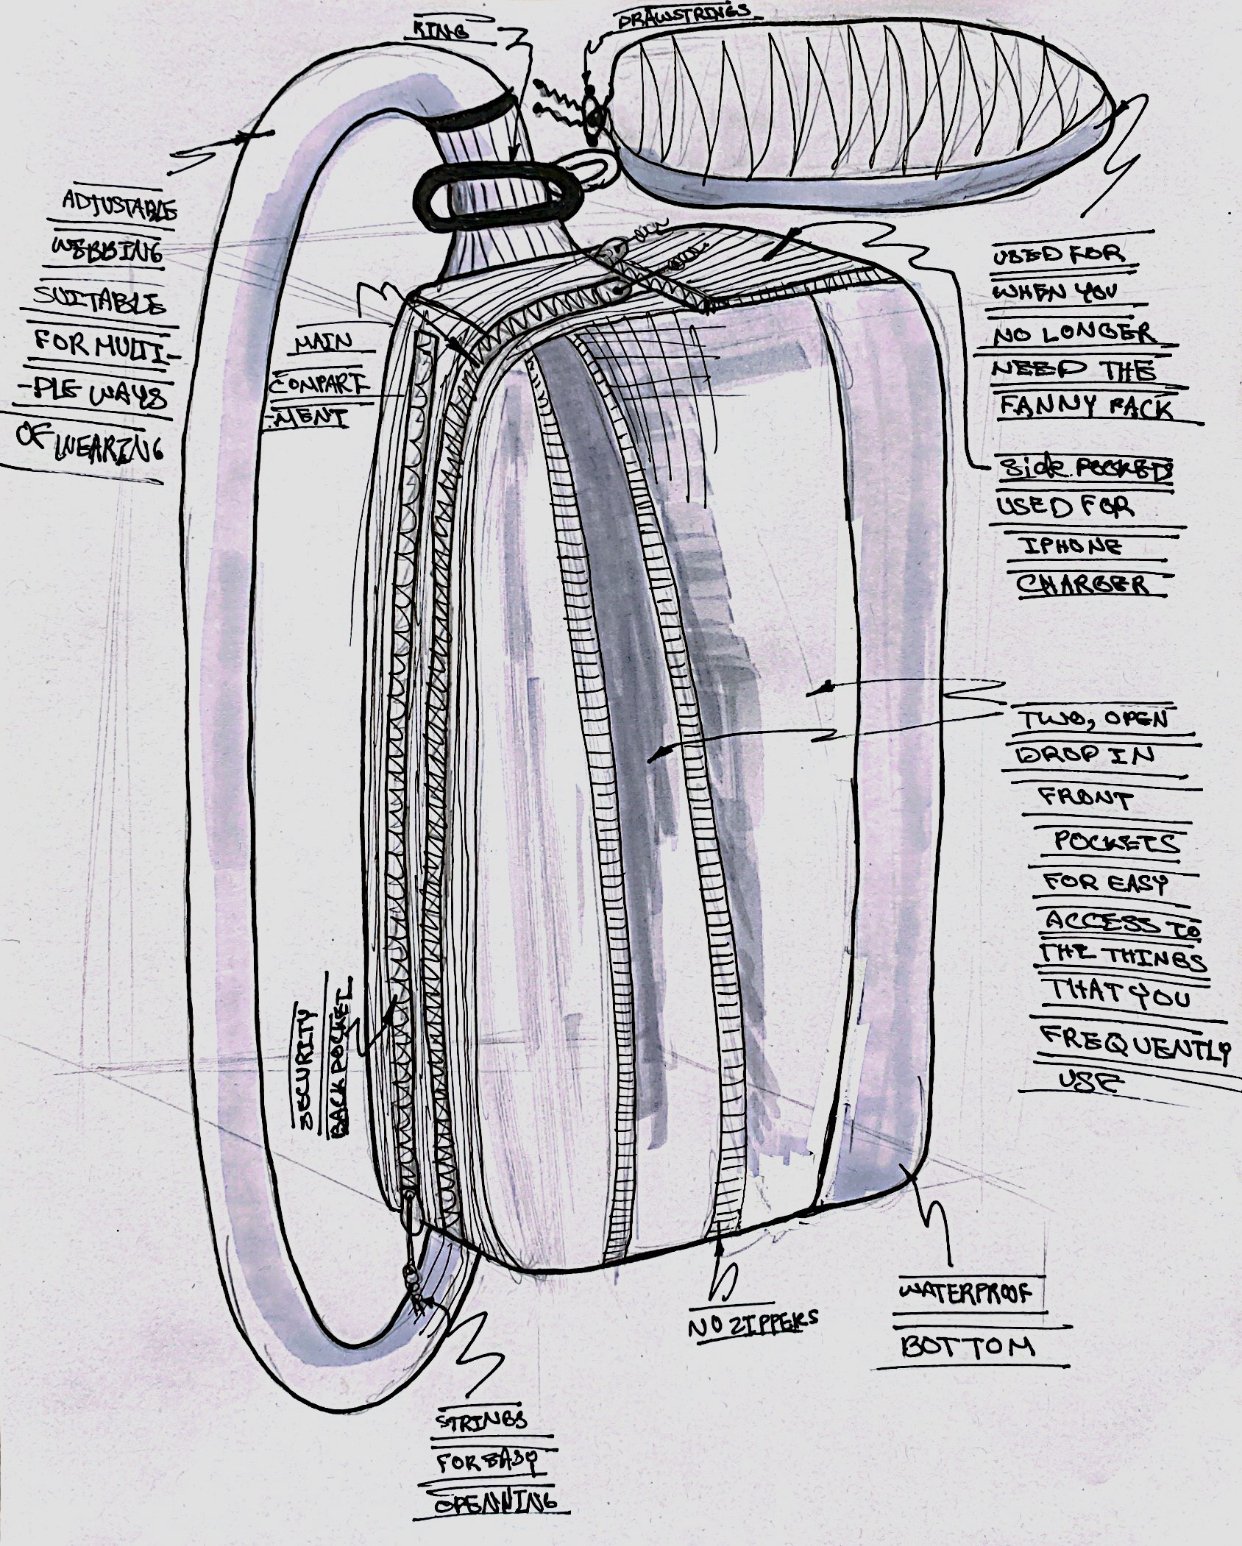 RING
DRAWSTRINGS
ADJUSTABLE
WEBBING
SUITABLE
FOR MULTI-
-PLE WAYS
OF WEARING
MAIN
CONPART-
-MENT
USED FOR
WHEN YOU
NO LONGER
NEED THE
FANNY PACK
Side POCKEDS
USED FOR
IPHONE
CHARGER
TWO, OPEN
DROP IN
FRONT
POCKETS
FOR EASY
ACCESS TO
THE THINGS
THAT YOU
FREQUENTLY
USE
SECURITY
BACK POCKET
NO ZIPPERS
WATERPROOF
BOTTOM
STRINGS
FOR EASY
OPENNING